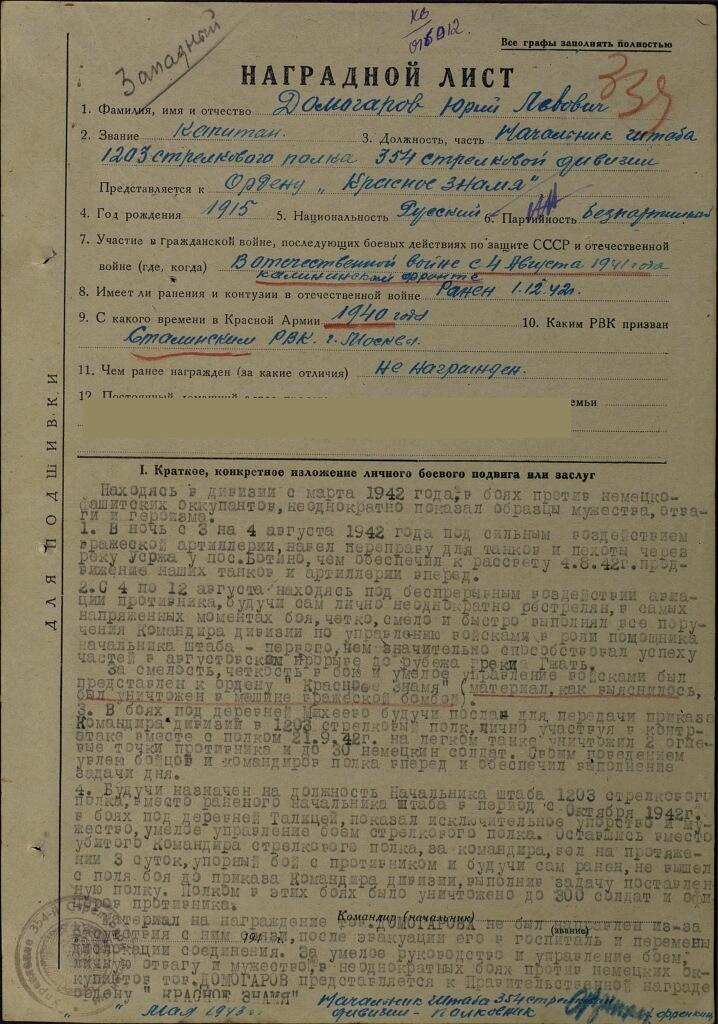 Западный
Все графы заполнять полностью
НАГРАДНОЙ ЛИСТ
339
1. Фамилия, имя и отчество Домогаров Юрий Львович
2. Звание Капитан. 3. Должность, часть Начальник штаба
1203 стрелкового полка 354 стрелковой дивизии
Представляется к Ордену „Красное знамя"
4. Год рождения 1915 5. Национальность Русский 6. Партийность Безпартийный
7. Участие в гражданской войне, последующих боевых действиях по защите СССР и отечественной
войне (где, когда) В отечественной войне с 4 Августа 1941 года
калининском фронте
8. Имеет ли ранения и контузии в отечественной войне Ранен 1.12.42г.
9. С какого времени в Красной Армии 1940 года 10. Каким РВК призван
Сталинским РВК. г. Москва.
11. Чем ранее награжден (за какие отличия) Не награжден.
ДЛЯ ПОДШИВКИ
I. Краткое, конкретное изложение личного боевого подвига или заслуг
Находясь в дивизии с марта 1942 года, в боях против немецко-
фашитских оккупантов, неоднократно показал образцы мужества, отва-
ги и героизма.
1. В ночь с 3 на 4 августа 1942 года под сильным воздействием
вражеской артиллерии, навел переправу для танков и пехоты через
реку у пос. чем обеспечил к рассвету 4.8.42г. прод-
вижение наших танков и артиллерии вперед.
2. С 4 по 12 августа находясь под беспрерывным воздействии авиа-
ции противника, будучи сам лично неоднократно растрелян, в самых
напряженных моментах боя, четко, смело и быстро выполнял все пору-
чения Командира дивизии по управлению войсками в роли помощника
начальника штаба - первого, чем значительно способствовал успеху
частей в августовском прорыве до рубежа реки Гжать.
За смелость, четкость в бою и умелое управление войсками был
представлен к ордену "Красное Знамя" (материал, как выяснилось,
был уничтожен в машине вражеской бомбой).
3. В боях под деревней Михеево будучи послан для передачи приказа
Командира дивизии в 1203 стрелковый полк, лично участвуя в контр-
атаке вместе с полком 21.9.42г. на легком танке уничтожил 2 огне-
вые точки противника и до 30 немецкин солдат. Своим поведением
увлек бойцов и командиров полка вперед и обеспечил выполнение
задачи дня.
4. Будучи назначен на должность Начальника штаба 1203 стрелкового
полка, вместо раненого начальника штаба в период с Октября 1942г.
в боях под деревней Талицей, показал исключительное упорство и му-
жество, умелое управление боем стрелкового полка. Оставшись вместо
убитого Командира стрелкового полка, за командира, вел на протяже-
нии 3 суток, упорный бой с противником и будучи сам ранен, не вышел
с поля боя до приказа Командира дивизии, выполнив задачу поставлен-
ную полку. Полком в этих боях было уничтожено до 300 солдат и офи-
церов противника.
Командир (начальник)
Материал на награждение тов. ДОМОГАРОВА не был отправлен из-за
отсутствия с ним связи, после эвакуации его в госпиталь и перемены
(звание)
дислокации соединения. За умелое руководство и управление боем,
личную отвагу и мужество, в неоднократных боях против немецких ок-
купантов тов. ДОМОГАРОВ представляется к Правительственной награде
ордену "КРАСНОЕ ЗНАМЯ"
Начальник штаба 354 стрелковой
май 1943 г. дивизии - полковник